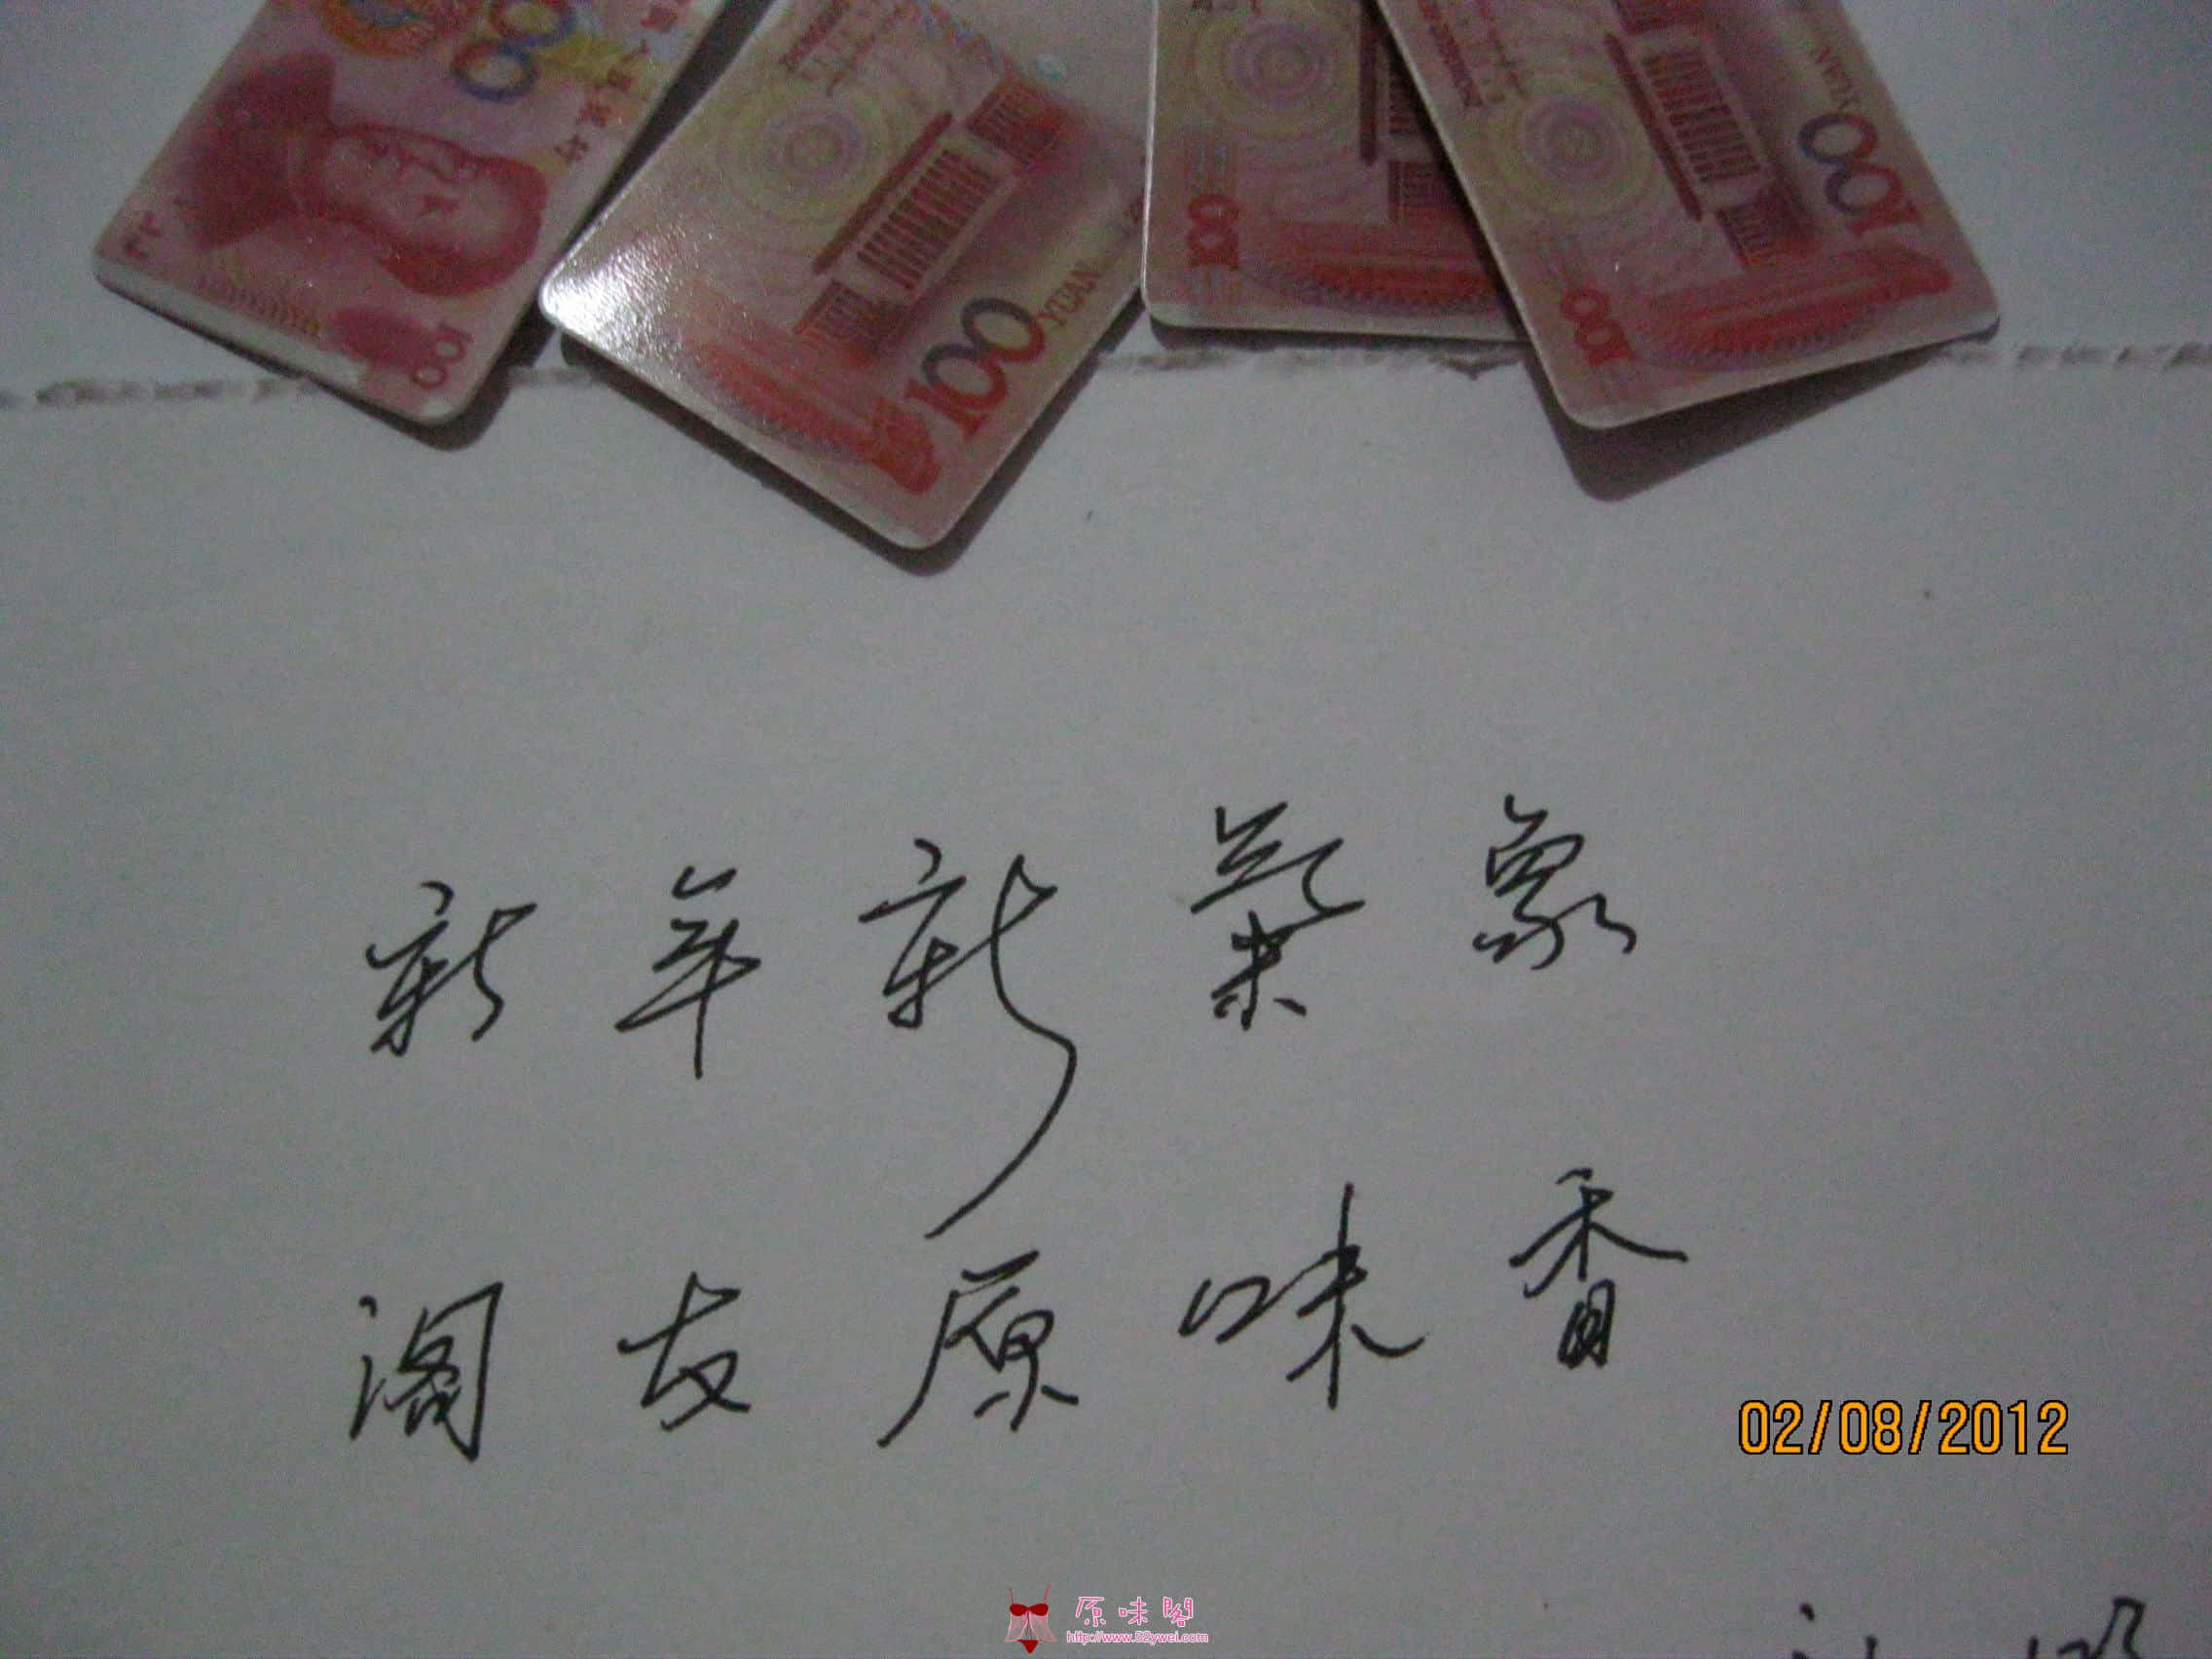 100
100
YUAN
100
100
YUAN
100
新年新气象
阁友原味香
02/08/2012
原味阁
http://www.52ywei.com